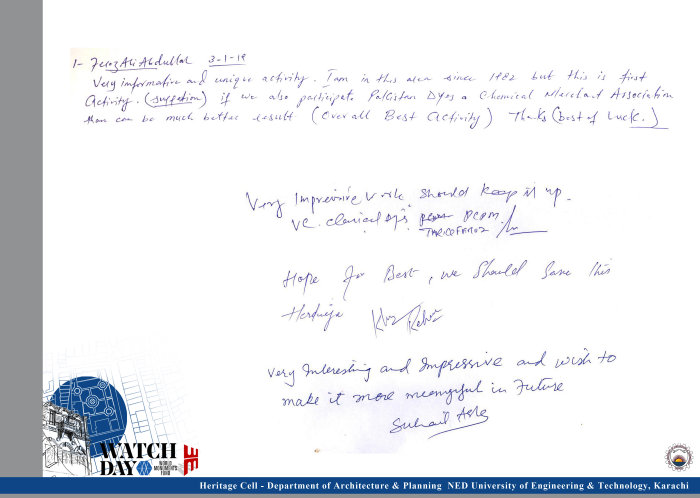 1- Feroz Ali Abdullah 3-1-19
Very informative and unique activity. I am in this area since 1982 but this is first
Activity. (suggestion) if we also participate Pakistan Dyes & Chemical Merchant Association
then can be much better result (Over all Best Activity) Thanks (best of Luck.)
Very Impressive work. Should keep it up.
VC.
Hope for Best, we Should Save this
Very Interesting and Impressive and wish to
make it more meaningful in Future
WATCH
DAY
WORLD
MONUMENTS
FUND
Heritage Cell - Department of Architecture & Planning NED University of Engineering & Technology, Karachi